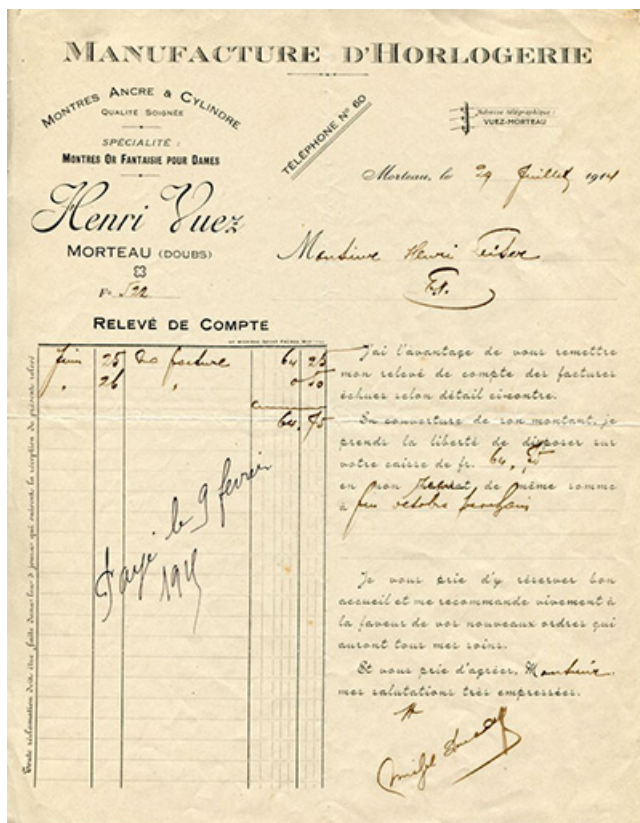 MANUFACTURE D'HORLOGERIE
MONTRES ANCRE & CYLINDRE
QUALITÉ SOIGNÉE
SPÉCIALITÉ :
MONTRES OR FANTAISIE POUR DAMES
Henri Vuez
MORTEAU (DOUBS)
TÉLÉPHONE N° 60
Adresse télégraphique :
VUEZ-MORTEAU
Morteau, le 29 Juillet 1914
Monsieur Henri
Fo 522
RELEVÉ DE COMPTE
Juin 25 ma facture 64 25
" 26 " 0 50
64,75
Payé le 9 fevrier
1915
Toute réclamation doit être faite dans les 8 jours qui suivent la réception du présent relevé
J'ai l'avantage de vous remettre
mon relevé de compte des factures
échues selon détail cicontre.
En couverture de son montant, je
prends la liberté de disposer sur
votre caisse de fr. 64,
en mon mandat, de même somme
à fin octobre prochain
Je vous prie d'y réserver bon
accueil et me recommande vivement à
la faveur de vos nouveaux ordres qui
auront tous mes soins.
Et vous prie d'agréer, Monsieur
mes salutations très empressées.